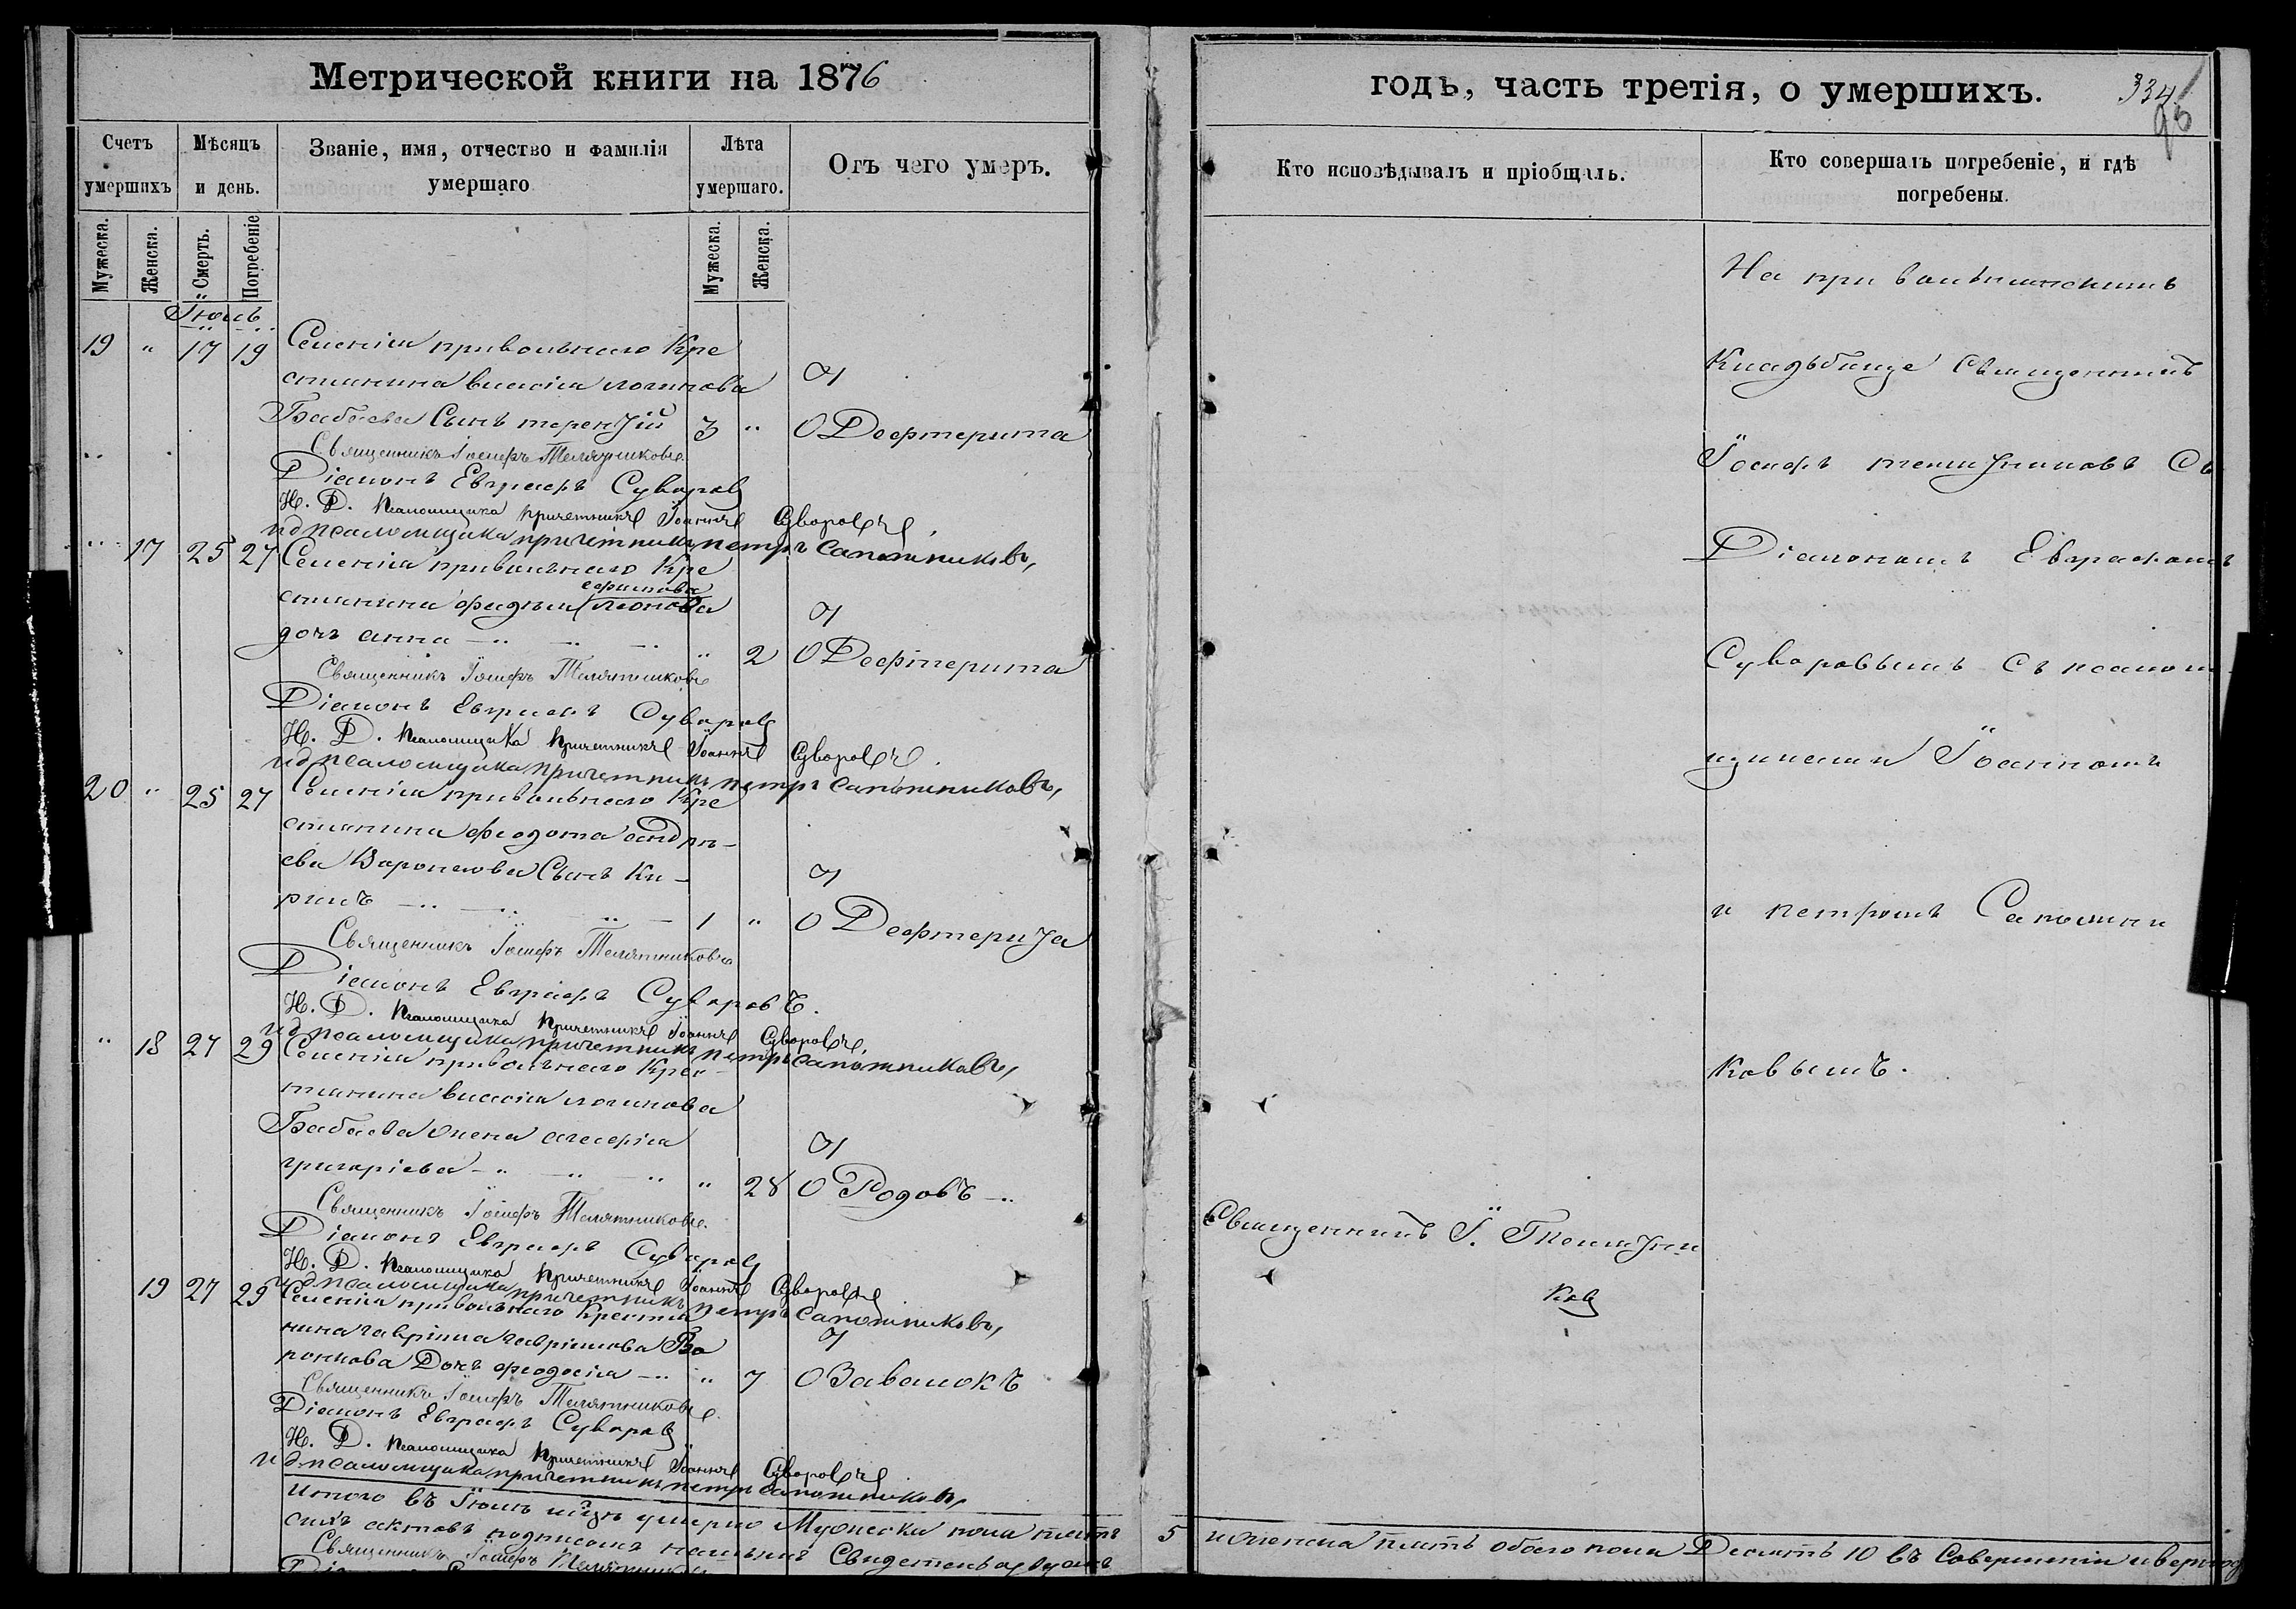 Метрической книги на 1876
Счетъ умершихъ
Мѣсяцъ и день.
Званіе, имя, отчество и фамилія умершаго
Лѣта умершаго.
Отъ чего умеръ.
Мужеска.
Женска.
Смерть.
Погребеніе
Мужеска.
Женска.
Іюнь
19 " 17 19 Селенія привольнаго Кре
стьянина власія логинова
Бабаева Сынъ терентій 3 " О Дефтерита
Священникъ Іосифъ Телятниковъ
Діаконъ Евграфъ Суворовъ
И. Д. Псаломщика причетникъ Іоаннъ Суворовъ.
ид псаломщика причетникъ петръ сапожниковъ,
" 17 25 27 Селенія привольнаго Кре
ефимова
стьянина
дочь анна " 2 О Дефтерита
Священникъ Іосифъ Телятниковъ
Діаконъ Евграфъ Суворовъ
И. Д. Псаломщика Причетникъ Іоаннъ Суворовъ.
ид псаломщика причетникъ петръ сапожниковъ,
20 " 25 27 Селенія привольнаго Кре
стьянина феодота андре-
ева Воронкова Сынъ Ки-
рилъ 1 " О Дефтерита
Священникъ Іосифъ Телятниковъ
Діаконъ Евграфъ Суворовъ.
И. Д. Псаломщика Причетникъ Іоаннъ Суворовъ.
ид псаломщика причетникъ петръ сапожниковъ,
" 18 27 29 Селенія привольнаго Крес
тьянина власія логинова
Бабаева жена
григоріева " 28 О Родовъ
Священникъ Іосифъ Телятниковъ.
Діаконъ Евграфъ Суворовъ
И. Д. Псаломщика Причетникъ Іоаннъ Суворовъ
ид псаломщика причетникъ петръ сапожниковъ,
19 27 29 Селенія привольнаго Крестья
нина гавріила гаврілова Во
ронкова Дочь феодосія " 7 О Завалокъ
Священникъ Іосифъ Телятниковъ.
Діаконъ Евграфъ Суворовъ
И. Д. Псаломщика Причетникъ Іоаннъ Суворовъ
ид псаломщика причетникъ петръ сапожниковъ,
итого въ Іюнѣ умерло Мужеска пола пять
сихъ актовъ подписомъ нашимъ Свидетельствуемъ
Священникъ Іосифъ Телятниковъ
годъ, часть третія, о умершихъ.
334
96
Кто исповѣдывалъ и пріобщалъ.
Кто совершалъ погребеніе, и гдѣ погребены.
На привольненскимъ
Кладъбище Священникъ
Іосифъ телятниковъ Съ
Діакономъ Евграфомъ
Суворовымъ Съ псалом
щиками Іоанномъ
и петромъ Сапожни
ковымъ.
Священникъ І. Телятни
ковъ
5 и женска пять обоего пола Десять 10 въ Совершеніи